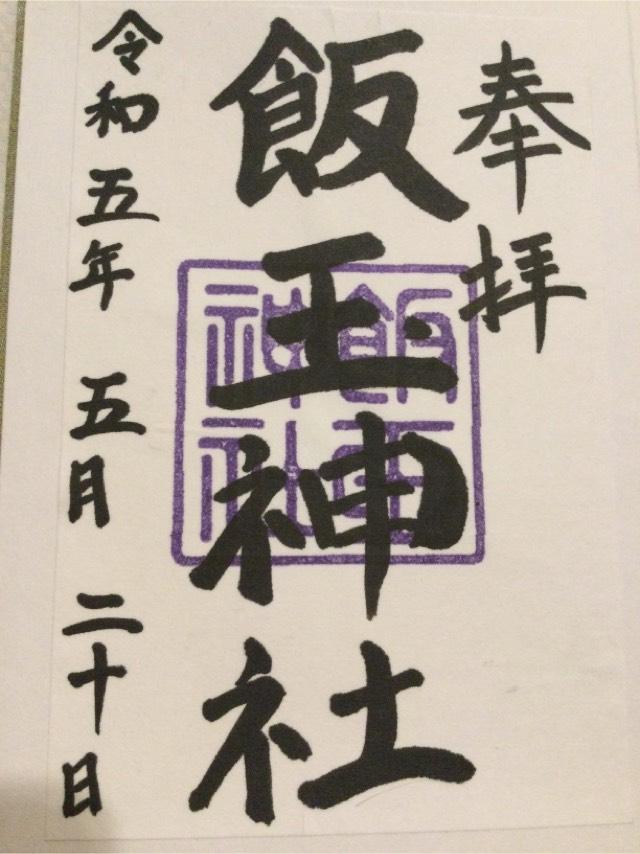 奉拝
飯玉神社
令和五年 五月 二十日
飯玉
神社